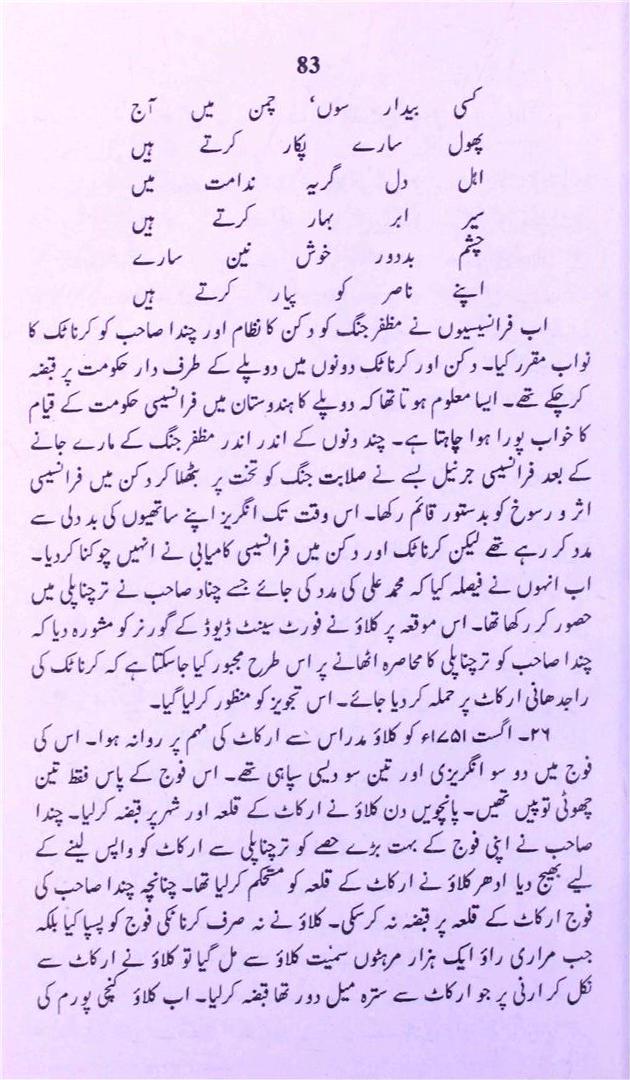 83
کسی بیدار سوں، چمن میں آج
پھول سارے پکار کرتے ہیں
اہل دل گریہ ندامت میں
سیر ابر بہار کرتے ہیں
چشم بددور خوش نین سارے
اپنے ناصر کو پیار کرتے ہیں
اب فرانسیسیوں نے مظفر جنگ کو دکن کا نظام اور چندا صاحب کو کرناٹک کا
نواب مقرر کیا۔ دکن اور کرناٹک دونوں میں دوپلے کے طرف دار حکومت پر قبضہ
کرچکے تھے۔ ایسا معلوم ہوتا تھا کہ دوپلے کا ہندوستان میں فرانسیسی حکومت کے قیام
کا خواب پورا ہوا چاہتا ہے۔ چند دنوں کے اندر اندر مظفر جنگ کے مارے جانے
کے بعد فرانسیسی جرنیل بسے نے صلابت جنگ کو تخت پر بٹھلا کر دکن میں فرانسیسی
اثر و رسوخ کو بدستور قائم رکھا۔ اس وقت تک انگریز اپنے ساتھیوں کی بددلی سے
مدد کر رہے تھے لیکن کرناٹک اور دکن میں فرانسیسی کامیابی نے انہیں چوکنا کردیا۔
اب انہوں نے فیصلہ کیا کہ محمد علی کی مدد کی جائے جسے چناد صاحب نے ترچناپلی میں
حصور کر رکھا تھا۔ اس موقعہ پر کلاؤ نے فورٹ سینٹ ڈیوڈ کے گورنر کو مشورہ دیا کہ
چندا صاحب کو ترچناپلی کا محاصرہ اٹھانے پر اس طرح مجبور کیا جاسکتا ہے کہ کرناٹک کی
راجدھانی ارکاٹ پر حملہ کردیا جائے۔ اس تجویز کو منظور کرلیا گیا۔
۲۶۔ اگست ۱۷۵۱ء کو کلاؤ مدراس سے ارکاٹ کی مہم پر روانہ ہوا۔ اس کی
فوج میں دو سو انگریزی اور تین سو دیسی سپاہی تھے۔ اس فوج کے پاس فقط تین
چھوٹی توپیں تھیں۔ پانچویں دن کلاؤ نے ارکاٹ کے قلعہ اور شہر پر قبضہ کرلیا۔ چندا
صاحب نے اپنی فوج کے بہت بڑے حصے کو ترچناپلی سے ارکاٹ کو واپس لینے کے
لیے بھیج دیا ادھر کلاؤ نے ارکاٹ کے قلعہ کو مستحکم کرلیا تھا۔ چنانچہ چندا صاحب کی
فوج ارکاٹ کے قلعہ پر قبضہ نہ کرسکی۔ کلاؤ نے نہ صرف کرناٹکی فوج کو پسپا کیا بلکہ
جب مراری راؤ ایک ہزار مرہٹوں سمیت کلاؤ سے مل گیا تو کلاؤ نے ارکاٹ سے
نکل کر ارنی پر جو ارکاٹ سے سترہ میل دور تھا قبضہ کرلیا۔ اب کلاؤ کنجی پورم کی